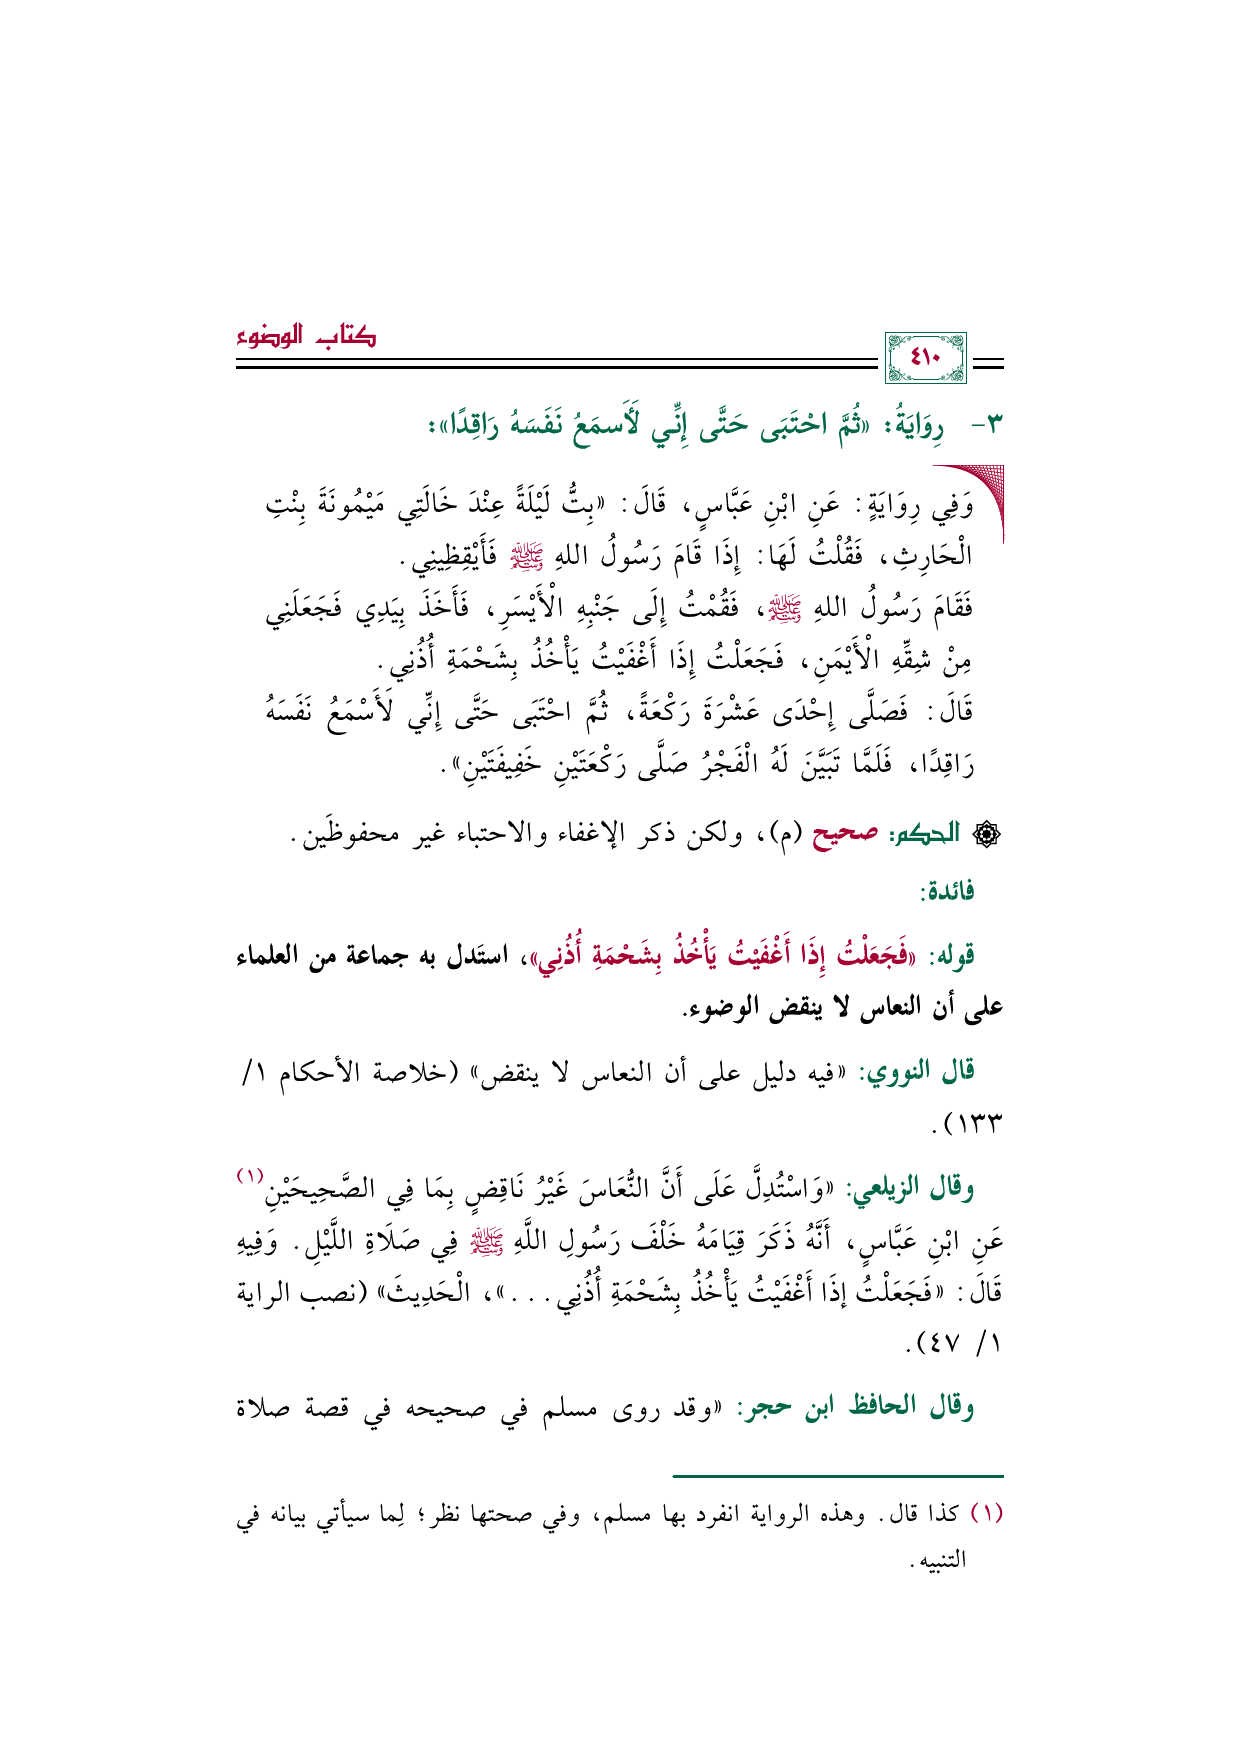 كتاب الوضوء
٤١٠
٣- رِوَايَةُ: «ثُمَّ احْتَبَى حَتَّى إِنِّي لَأَسمَعُ نَفَسَهُ رَاقِدًا»:
وَفِي رِوَايَةٍ: عَنِ ابْنِ عَبَّاسٍ، قَالَ: «بِتُّ لَيْلَةً عِنْدَ خَالَتِي مَيْمُونَةَ بِنْتِ
الْحَارِثِ، فَقُلْتُ لَهَا: إِذَا قَامَ رَسُولُ اللهِ ﷺ فَأَيْقِظِينِي.
فَقَامَ رَسُولُ اللهِ ﷺ، فَقُمْتُ إِلَى جَنْبِهِ الْأَيْسَرِ، فَأَخَذَ بِيَدِي فَجَعَلَنِي
مِنْ شِقِّهِ الْأَيْمَنِ، فَجَعَلْتُ إِذَا أَغْفَيْتُ يَأْخُذُ بِشَحْمَةِ أُذُنِي.
قَالَ: فَصَلَّى إِحْدَى عَشْرَةَ رَكْعَةً، ثُمَّ احْتَبَى حَتَّى إِنِّي لَأَسْمَعُ نَفَسَهُ
رَاقِدًا، فَلَمَّا تَبَيَّنَ لَهُ الْفَجْرُ صَلَّى رَكْعَتَيْنِ خَفِيفَتَيْنِ».
الحكم: صحيح (م)، ولكن ذكر الإغفاء والاحتباء غير محفوظَين.
فائدة:
قوله: «فَجَعَلْتُ إِذَا أَغْفَيْتُ يَأْخُذُ بِشَحْمَةِ أُذُنِي»، استَدل به جماعة من العلماء
على أن النعاس لا ينقض الوضوء.
قال النووي: «فيه دليل على أن النعاس لا ينقض» (خلاصة الأحكام ١/
١٣٣).
وقال الزيلعي: «وَاسْتُدِلَّ عَلَى أَنَّ النُّعَاسَ غَيْرُ نَاقِضٍ بِمَا فِي الصَّحِيحَيْنِ(١)
عَنِ ابْنِ عَبَّاسٍ، أَنَّهُ ذَكَرَ قِيَامَهُ خَلْفَ رَسُولِ اللَّهِ ﷺ فِي صَلَاةِ اللَّيْلِ. وَفِيهِ
قَالَ: «فَجَعَلْتُ إذَا أَغْفَيْتُ يَأْخُذُ بِشَحْمَةِ أُذُنِي...»، الْحَدِيثَ» (نصب الراية
١/ ٤٧).
وقال الحافظ ابن حجر: «وقد روى مسلم في صحيحه في قصة صلاة
(١) كذا قال. وهذه الرواية انفرد بها مسلم، وفي صحتها نظر؛ لِما سيأتي بيانه في
التنبيه.